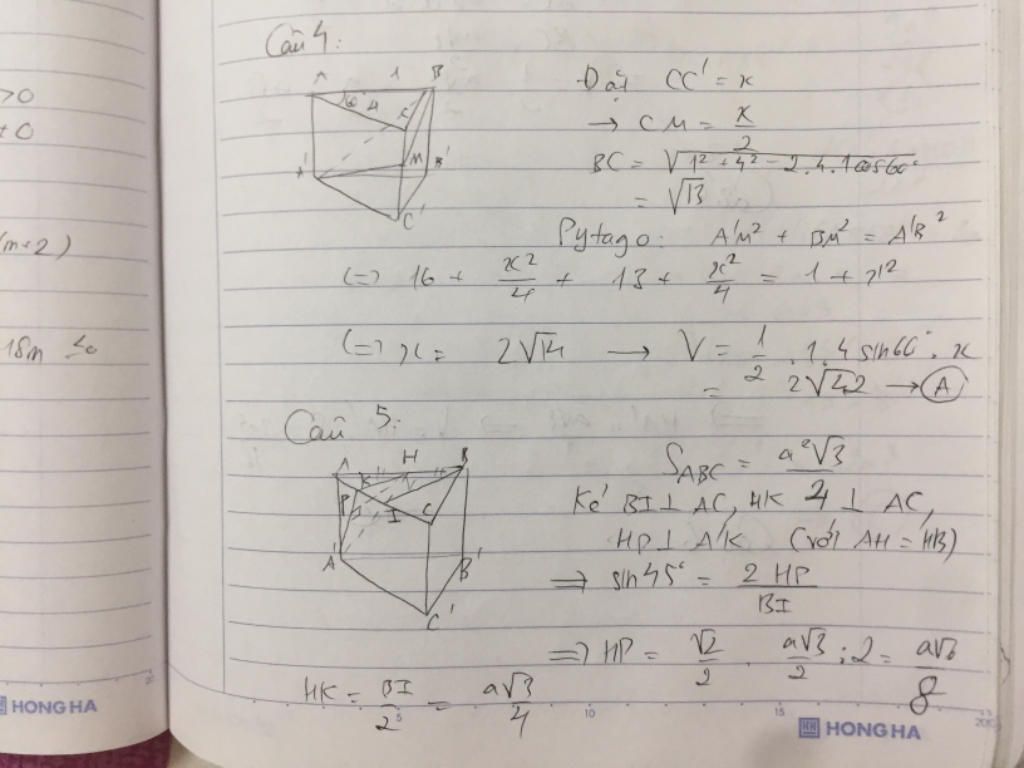 >0
+ 0
(m+2)
18m ≤0
Câu 4:
A 1 B
60 4 C
M
A' B'
C'
Đặt CC' = x
→ CM = x/2
BC = √(1² + 4² - 2.4.1cos60°)
= √13
Pytago: A'M² + BM² = A'B²
(=) 16 + x²/4 + 13 + x²/4 = 1 + x²
(=) x = 2√14 → V = 1/2 . 1.4 sin60° . x
= 2√42 → A
Câu 5:
A H B
K
P I C
A' B'
C'
S_ABC = a²√3/4
Kẻ BI ⊥ AC, HK ⊥ AC,
HP ⊥ A'K (với AH = HB)
=> sin45° = 2HP/BI
=> HP = √2/2 . a√3/2 : 2 = a√6/8
HK = BI/2 = a√3/4
HONG HA
5 10 15 20
HONG HA